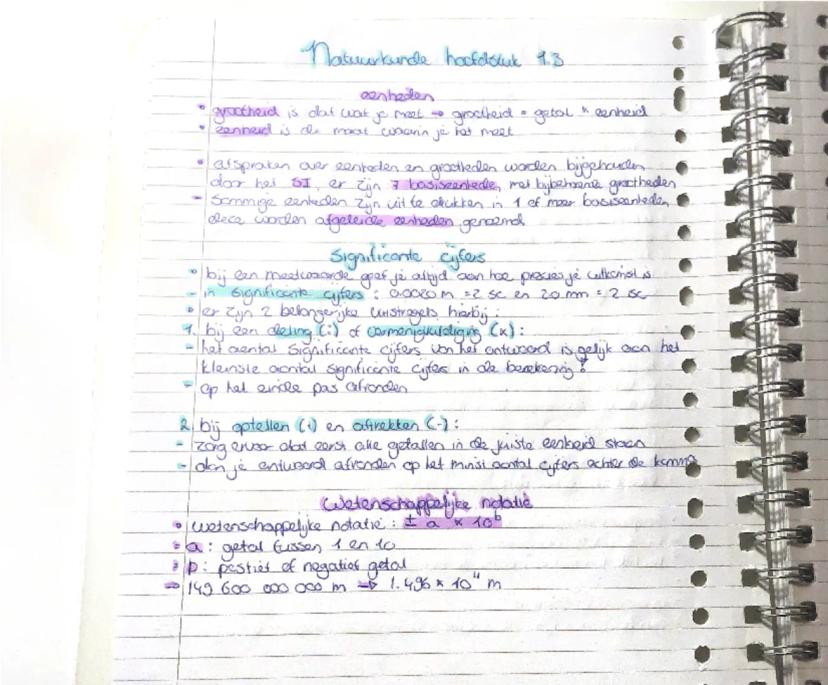 Natuurkunde hoofdstuk 1.3
eenheden
• grootheid is dat wat je meet → grootheid = getal × eenheid
• eenheid is de maat waarin je het meet
• afspraken over eenheden en grootheden worden bijgehouden
door het SI, er zijn 7 basiseenhede, met bijbehorende grootheden
- Sommige eenheden zijn uit te drukken in 1 of meer basiseenheden,
deze worden afgeleide eenheden genoemd
Significante cijfers
• bij een meetwaarde geef je altijd aan hoe precies je uitkomst is
- in significante cijfers : 0.0020 m = 2 sc en 20 mm = 2 sc
• er zijn 2 belangrijke vuistregels hierbij :
1. bij een deling (:) of vermenigvuldiging (x) :
- het aantal significante cijfers van het antwoord is gelijk aan het
kleinste aantal significante cijfers in de berekening !
- op het einde pas afronden
2. bij optellen (+) en aftrekken (-) :
- zorg ervoor dat eerst alle getallen in de juiste eenheid staan
- dan je antwoord afronden op het minst aantal cijfers achter de komma
Wetenschappelijke notatie
• wetenschappelijke notatie : ± a × 10ᵇ
• a : getal tussen 1 en 10
• b : postief of negatief getal
⇒ 149 600 000 000 m → 1.496 × 10¹¹ m